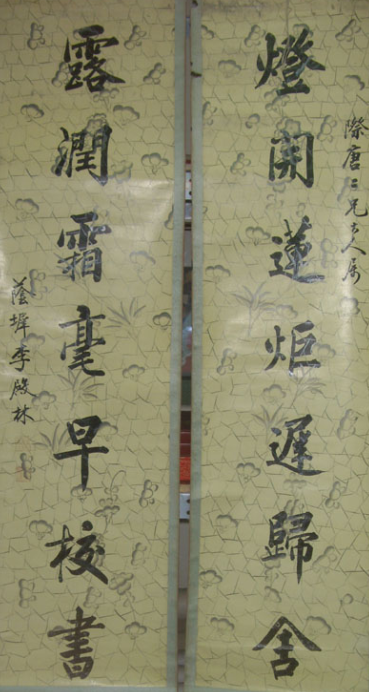 際唐二兄大人屬
燈開蓮炬遲歸舍
露潤霜毫早校書
蔭墀李殿林